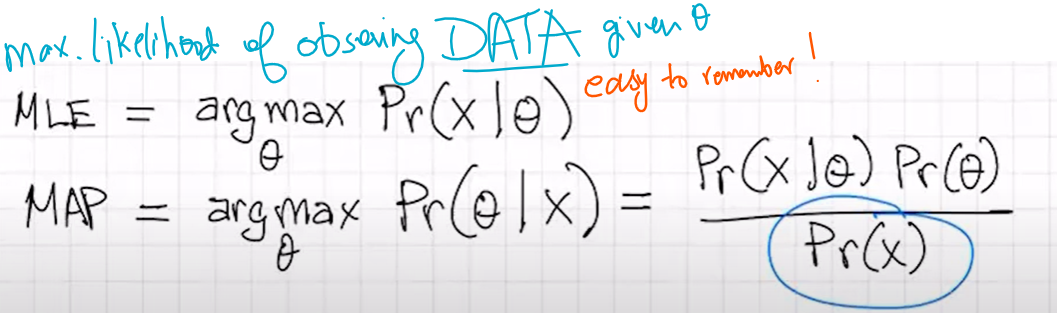 max. likelihood of observing DATA given θ
easy to remember!
MLE = argmax Pr(x|θ)
θ
MAP = argmax Pr(θ|x) = Pr(x|θ) Pr(θ)
θ
Pr(x)